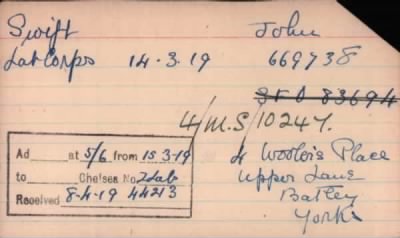 Swift John
Lab Corps 14-3-19 669738
SFD 83694
4/M.S/10247.
Ad at 5/6 from 15 3-19
to Chelsea No. 2 Lab
Received 8-4-19 44213
4 Woolers Place
Upper Lane
Batley
Yorks